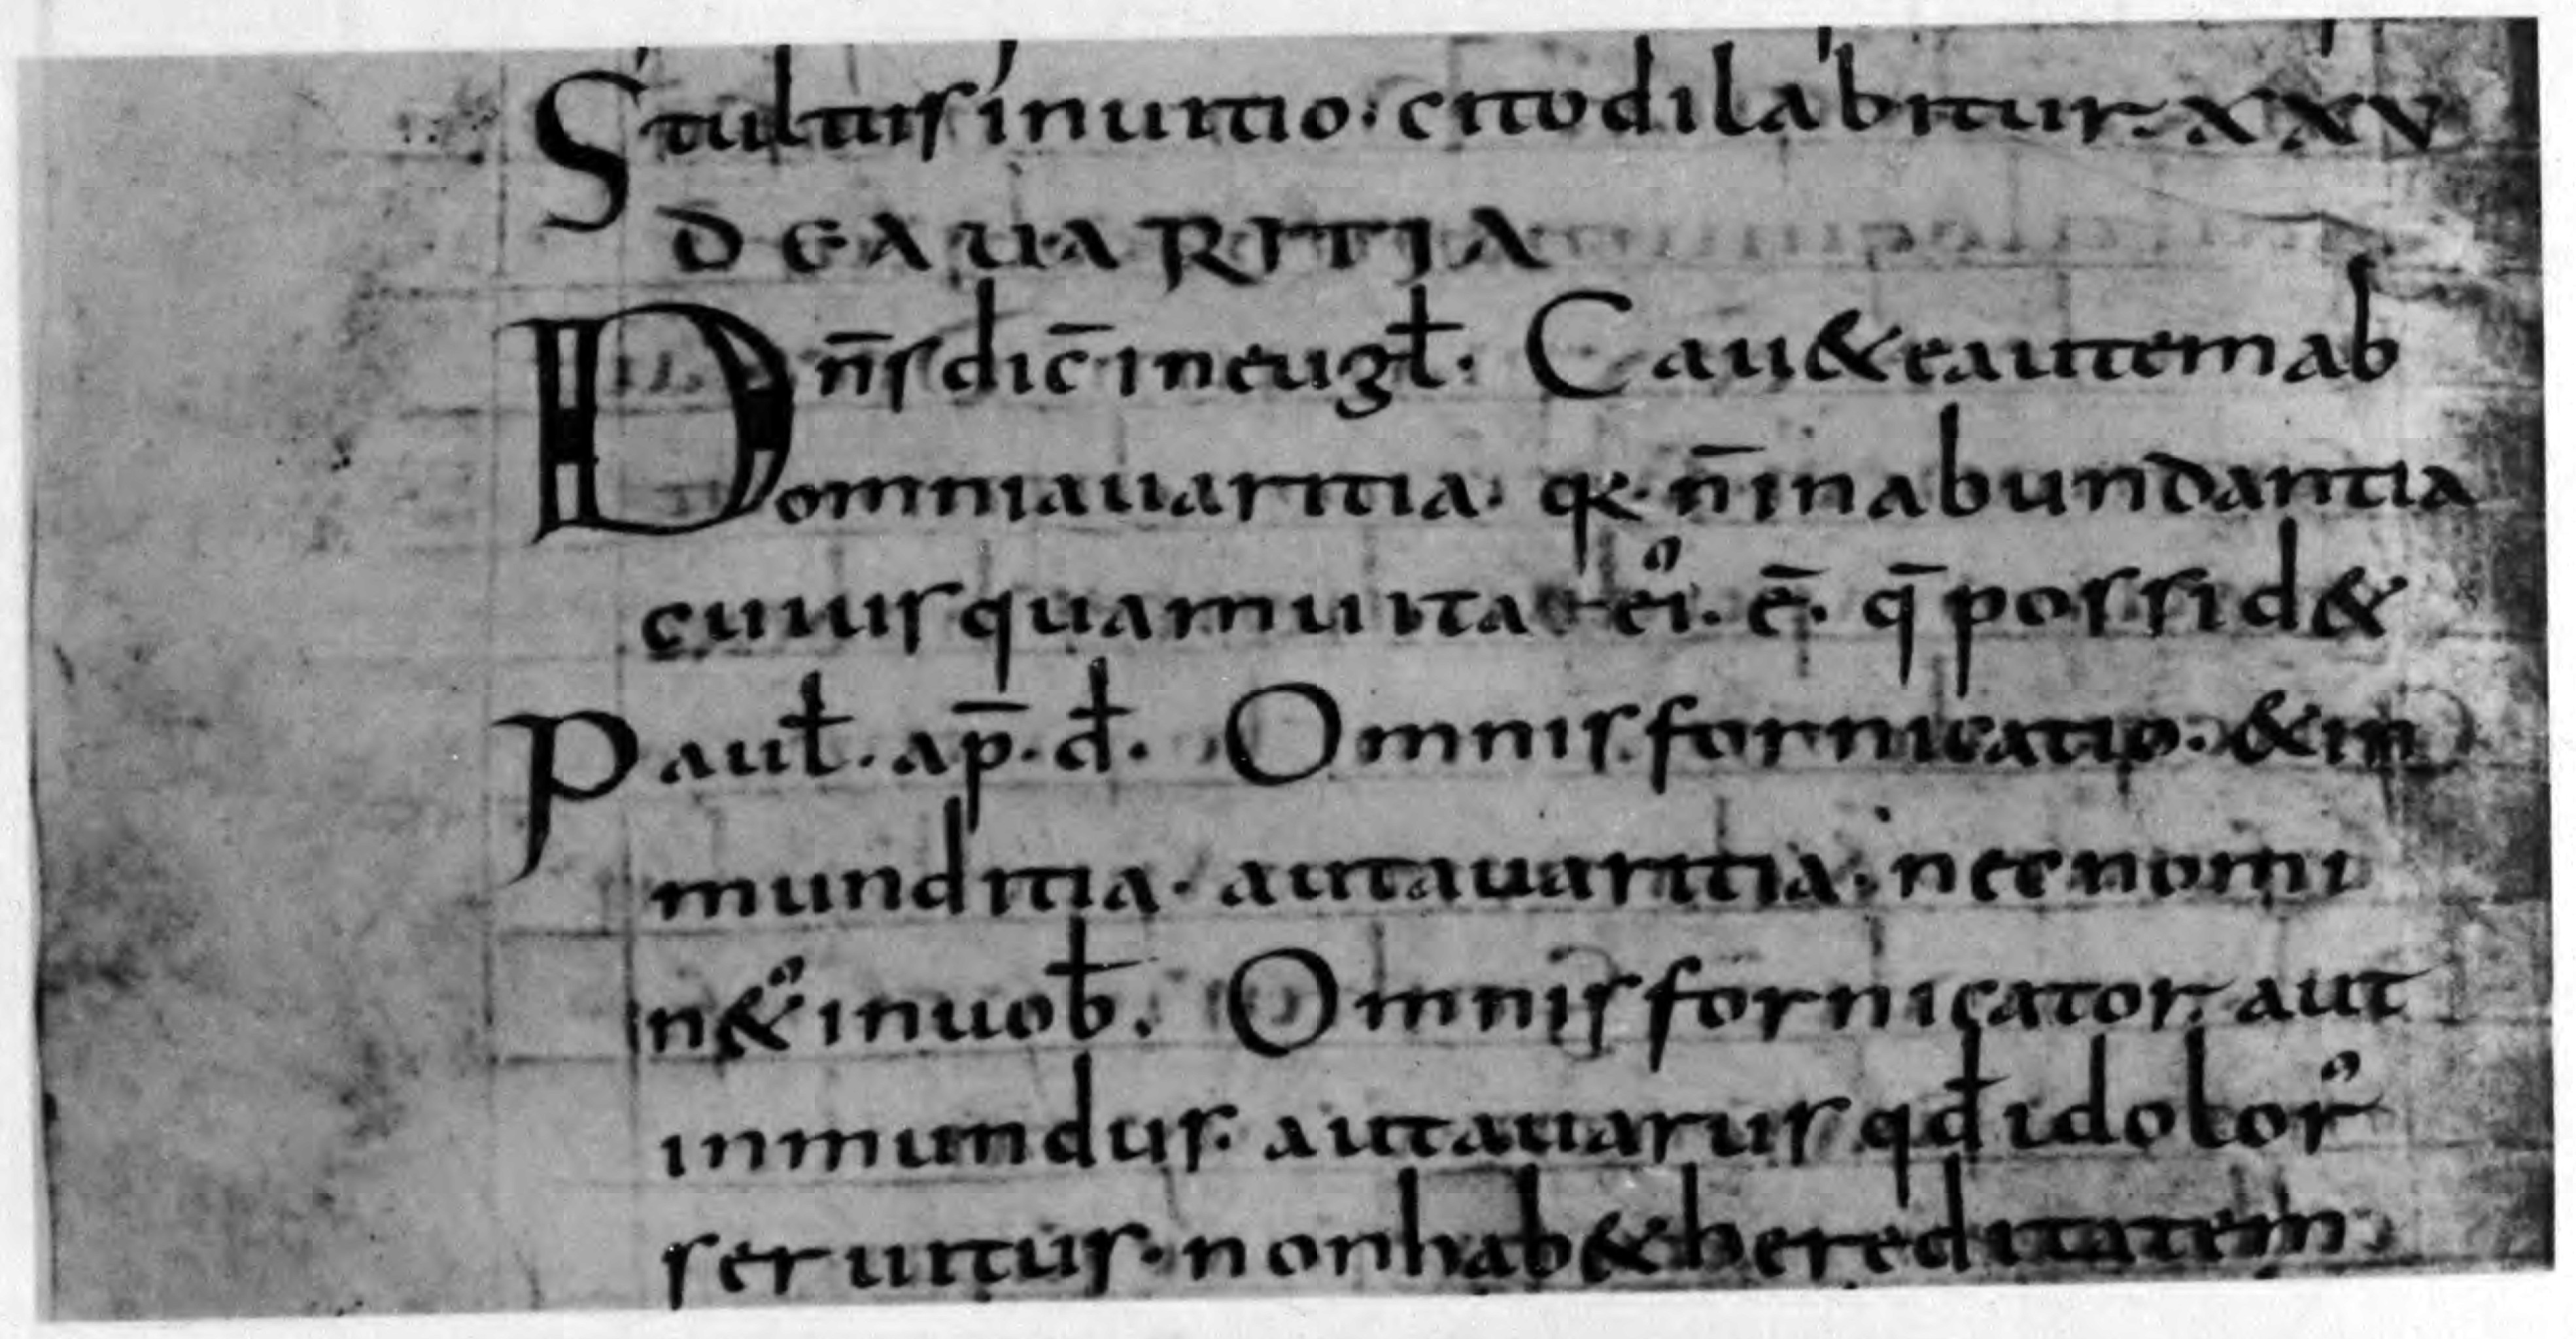 Stultus in uitio. cito dilabitur. XXV
DE AUARITIA
Dn̄s dic̄ in eugł. Cau&e autem ab
omni auaritia. qꝛ. n̄ in abundantia
cuiusquam uita ei᾿. ē. q̄ possid&
Pauł. ap̄. đ. Omnis fornicatio. & in
munditia. aut auaritia. nec nomi
n&᾿ in uob̵. Omnis fornicator. aut
inmundus. aut auarus qđ idolor᾿
seruitus. non hab& hereditatem